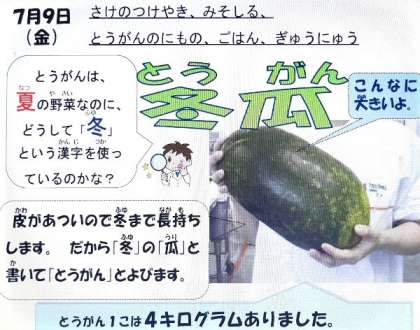 7月9日
（金）
さけのつけやき、みそしる、
とうがんのにもの、ごはん、ぎゅうにゅう
とう がん
冬瓜
こんなに
大きいよ。
とうがんは、
なつ や さい
夏の野菜なのに、
ふゆ
どうして「冬」
かん じ つか
という漢字を使っ
ているのかな？
かわ ふゆ なが も
皮があついので冬まで長持ち
ふゆ うり
します。 だから「冬」の「瓜」と
か
書いて「とうがん」とよびます。
とうがん１こは４キログラムありました。